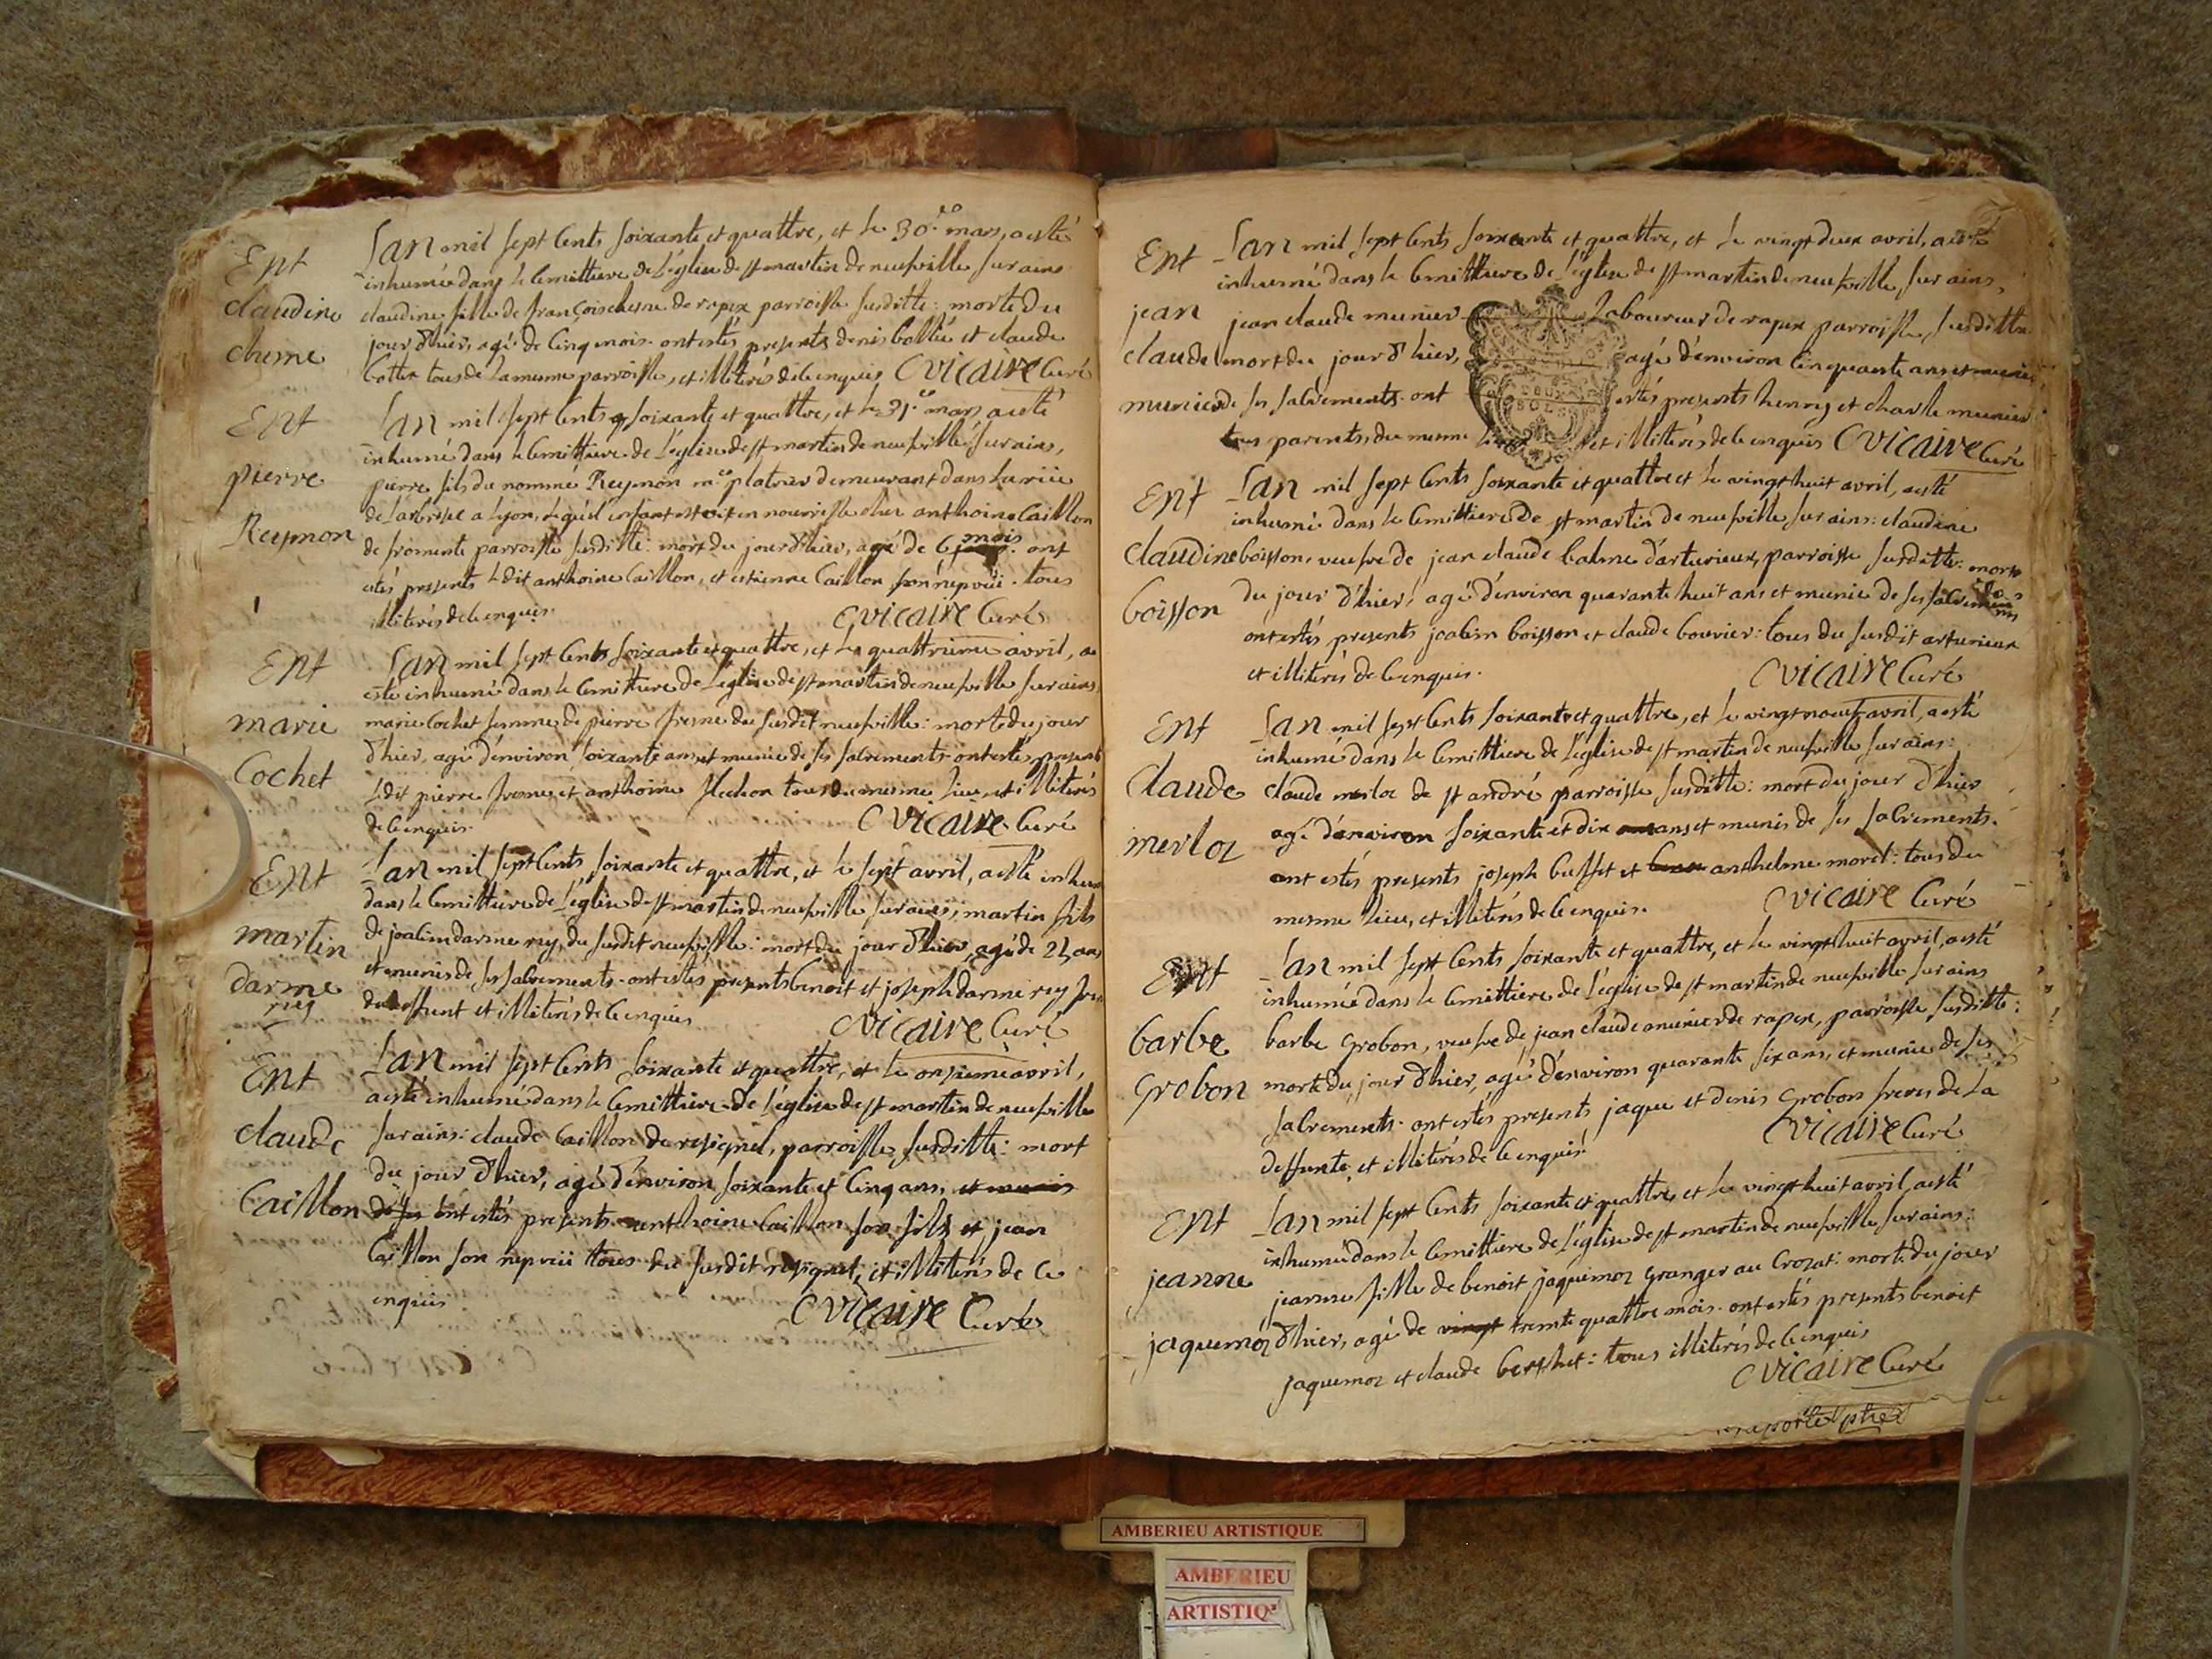 Ent
claudine
chesne
L'an mil sept cents soixante et quattre, et le 30.e mars, a esté
inhumée dans le cemittiere de l'eglise de st martin de neufville sur ains
claudine fille de françois chesne de rapex parroisse susditte: morte du
jour d'hier, agé de cinq mois. ont estés presents denis balliu et claude
bottex tous de la mesme parroisse, et illiterés de ce enquis C Vicaire Curé
Ent
pierre
Reymon
L'an mil sept cents soixante et quattre, et le 31.e mars a esté
inhumé dans le cemittiere de l'eglise de st martin de neufville sur ains,
pierre fils du nomme Reymon m.e platrier demeurant dans la rüe
de Larbresle a Lyon, lequel enfant estoit en nourrisse chez anthoine Caillon
de fromente parroisse susditte: mort du jour d'hier, agé de 6 mois. ont
estés presents ledit anthoine Caillon, et estienne Caillon son nepveü. tous
illiterés de ce enquis. C Vicaire Curé
Ent
marie
Cochet
L'an mil sept cents soixante et quattre, et le quattrieme avril, a
esté inhumé dans le cemittiere de l'eglise de st martin de neufville sur ains,
marie Cochet femme de pierre fresne du susdit neufville: morte du jour
d'hier, agé d'environ soixante ans, et munie de ses sacrements. ont estés presents
ledit pierre fresne et anthoine flechon tous du mesme lieu, et illiterés
de ce enquis. C Vicaire Curé
Ent
martin
darme
rey
L'an mil sept cents soixante et quattre, et le sept avril, a esté inhumé
dans le cemittiere de l'eglise de st martin de neufville sur ains, martin fils
de joachim darme rey, du susdit neufville: mort du jour d'hier, agé de 21 ans
et munis de ses sacrements. ont estés presents benoit et joseph darme rey freres
du deffunt et illiterés de ce enquis C Vicaire Curé
Ent
claude
Caillon
L'an mil sept cents soixante et quattre, et le onzieme avril,
a esté inhumé dans le cemittiere de l'eglise de st martin de neufville
sur ains: claude Caillon de resignel, parroisse susditte: mort
du jour d'hier, agé d'environ soixante et cinq ans, et munis
de ses ont estés presents anthoine Caillon son fils et jean
Caillon son nepveü tous du susdit resignel, et illiterés de ce
enquis C Vicaire Curé
Ent
jean
claude
munier
L'an mil sept cents soixante et quattre, et le vingt deux avril, a esté
inhumé dans le cemittiere de l'eglise de st martin de neufville sur ains,
jean claude munier laboureur de rapex parroisse susditte
mort du jour d'hier, agé d'environ cinquante ans et munis
de ses sacrements. ont estés presents henry et charle munier
tous parents, du mesme lieu et illiterés de ce enquis C Vicaire Curé
DEUX
SOLS
Ent
claudine
boisson
L'an mil sept cents soixante et quattre et le vingt huit avril, a esté
inhumé dans le cemittiere de st martin de neufville sur ains: claudine
boisson, veufve de jean claude balme d'arturieux, parroisse susditte: morte
du jour d'hier, agé d'environ quarante huit ans et munie de ses sacrements
ont estés presents joachim boisson et claude bouvier: tous du susdit arturieux
et illiterés de ce enquis. C Vicaire Curé
Ent
Claude
merloz
L'an mil sept cents soixante et quattre, et le vingt noeuf avril, a esté
inhumé dans le cemittiere de l'eglise de st martin de neufville sur ains:
claude merloz de st andré parroisse susditte: mort du jour d'hier
agé d'environ soixante et dix ans et munis de ses sacrements.
ont estés presents joseph buffet et anthelme morel: tous du
mesme lieu, et illiterés de ce enquis. C Vicaire Curé
Ent
barbe
Grobon
L'an mil sept cents soixante et quattre, et le vingt huit avril, a esté
inhumée dans le cemittiere de l'eglise de st martin de neufville sur ains
barbe Grobon, veufve de jean claude munier de rapex, parroisse susditte:
morte du jour d'hier, agé d'environ quarante six ans, et munie de ses
sacrements. ont estés presents jaque et denis Grobon freres de la
deffunte, et illiterés de ce enquis. C Vicaire Curé
Ent
jeanne
jaquemoz
L'an mil sept cents soixante et quattre, et le vingt huit avril, a esté
inhumé dans le cemittiere de l'eglise de st martin de neufville sur ains:
jeanne fille de benoit jaquemoz Granger au Crozat: morte du jour
d'hier, agé de vingt trente quattre mois. ont estés presents benoit
jaquemoz et claude berthet: tous illiterés de ce enquis
C Vicaire Curé
AMBERIEU ARTISTIQUE
AMBERIEU
ARTISTIQ